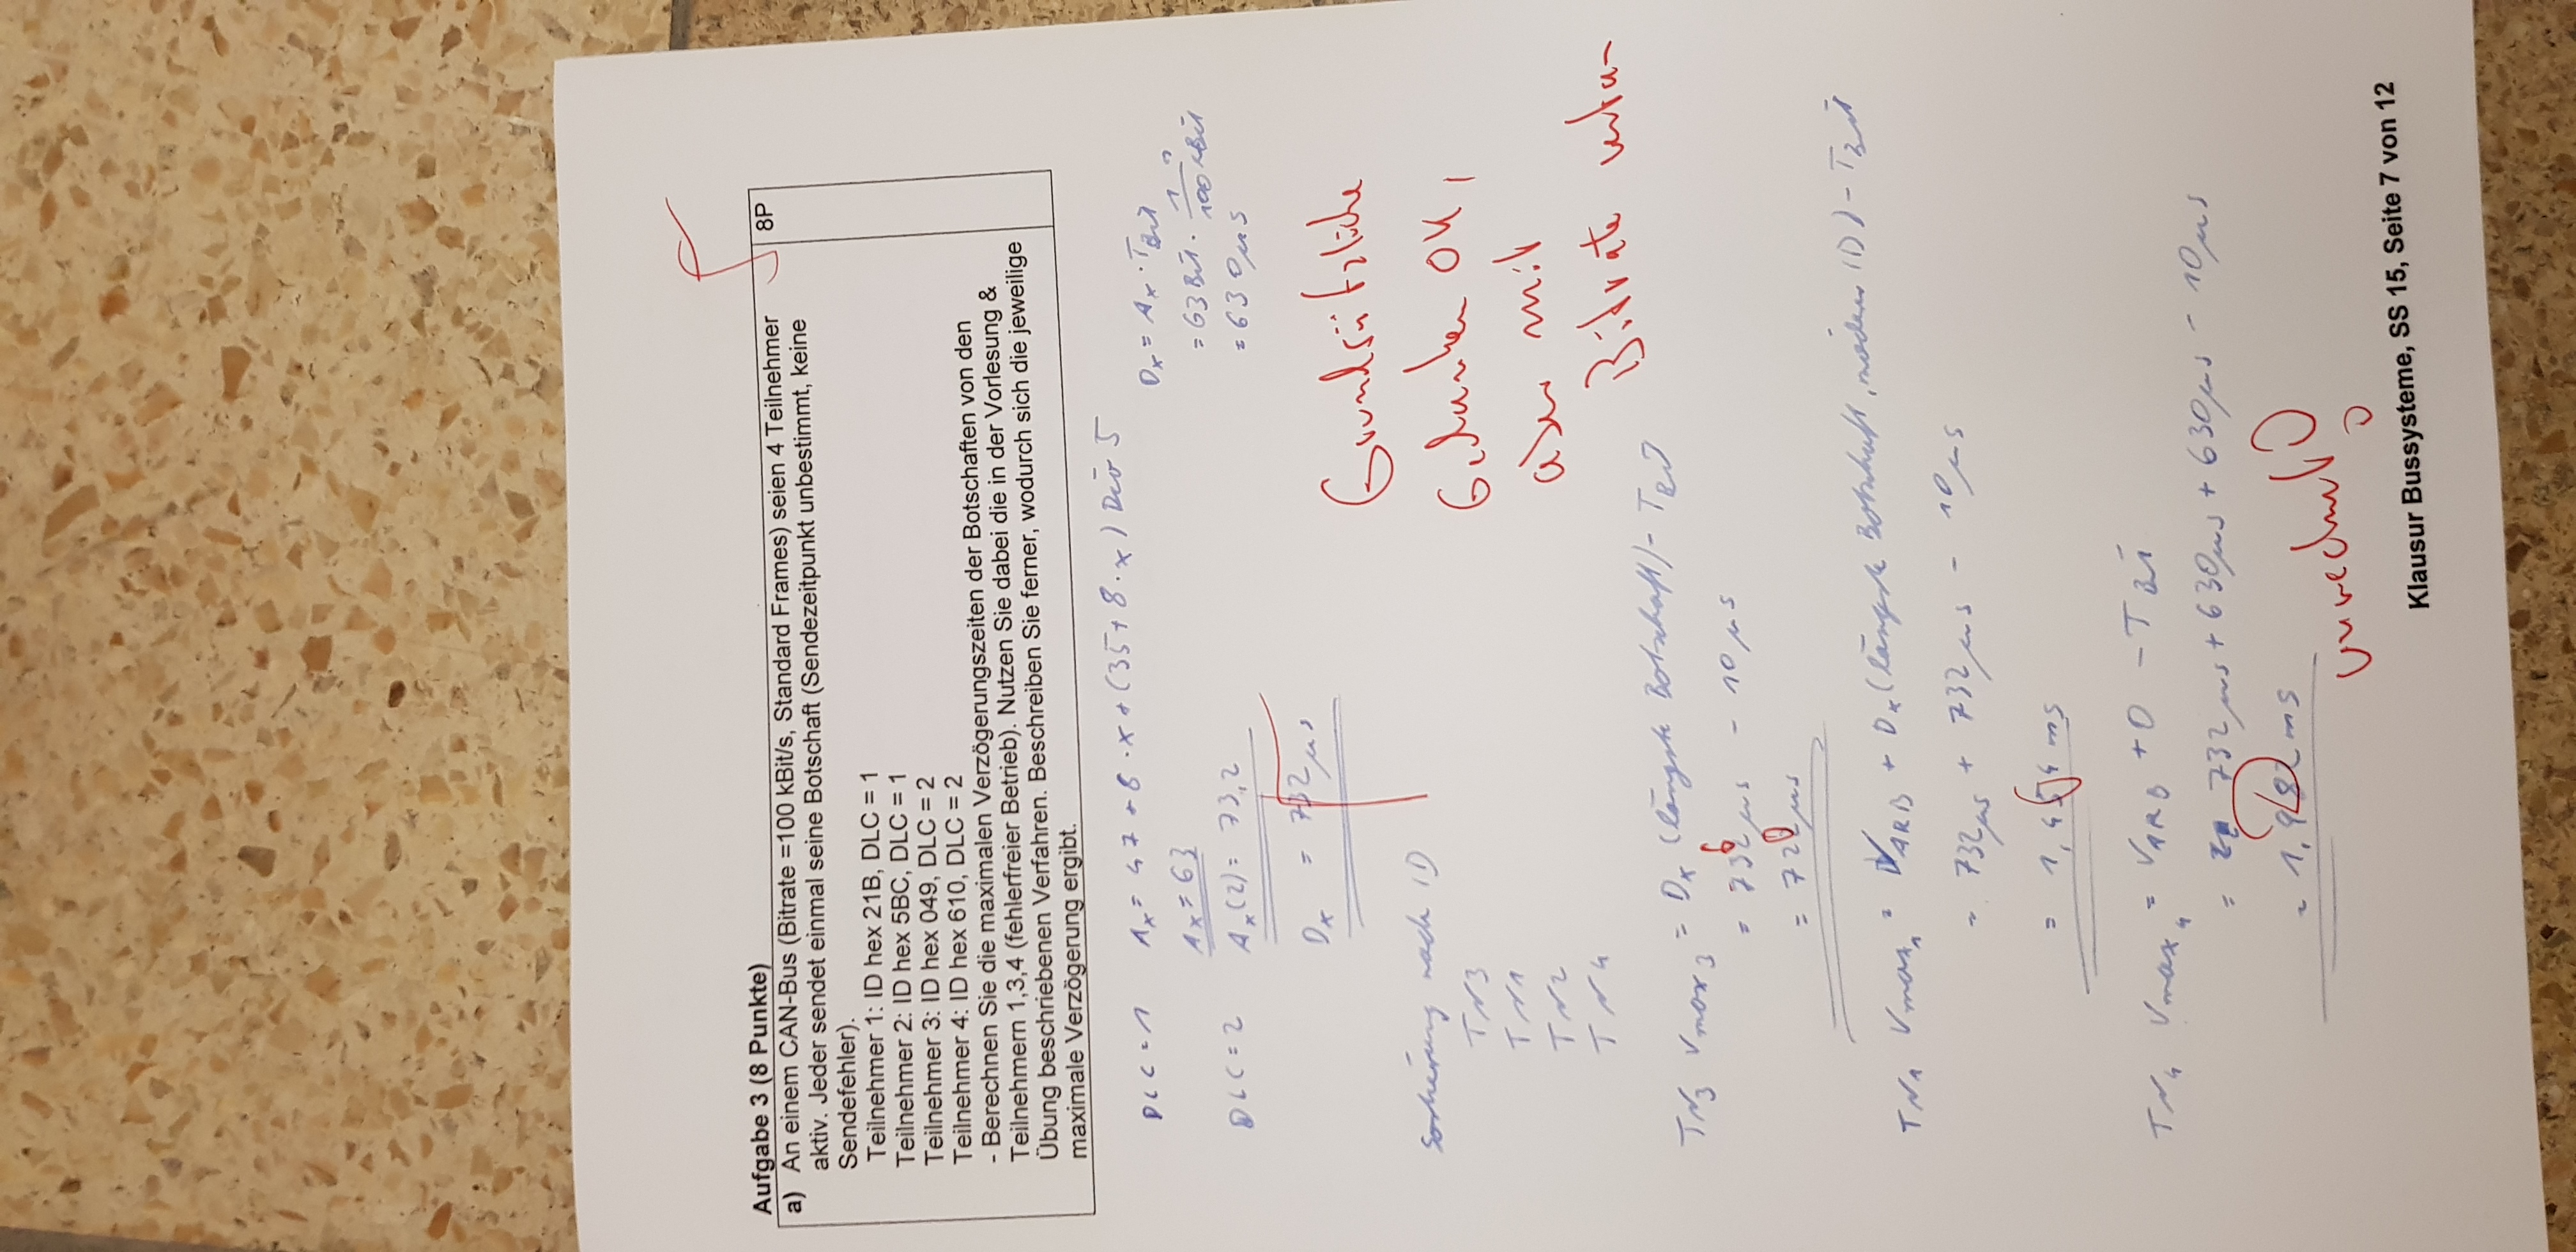 Aufgabe 3 (8 Punkte)
a) An einem CAN-Bus (Bitrate =100 kBit/s, Standard Frames) seien 4 Teilnehmer
8P
aktiv. Jeder sendet einmal seine Botschaft (Sendezeitpunkt unbestimmt, keine
Sendefehler).
Teilnehmer 1: ID hex 21B, DLC = 1
Teilnehmer 2: ID hex 5BC, DLC = 1
Teilnehmer 3: ID hex 049, DLC = 2
Teilnehmer 4: ID hex 610, DLC = 2
- Berechnen Sie die maximalen Verzögerungszeiten der Botschaften von den
Teilnehmern 1,3,4 (fehlerfreier Betrieb). Nutzen Sie dabei die in der Vorlesung &
Übung beschriebenen Verfahren. Beschreiben Sie ferner, wodurch sich die jeweilige
maximale Verzögerung ergibt.
DLC = 1 Ax = 47 + 8 · x + (35 + 8 · x) Div 5
Ax = 63
DLC = 2 Ax(2) = 73,2
Dx = 732 µs
Dx = Ax · TBit
= 63 Bit · 1/100 kBit
= 630 µs
Grundsätzliche
Gedanken OK,
aber mit
Bitrate vertan
Sortierung nach ID
TN3
TN1
TN2
TN4
TN3 Vmax3 = Dx (längste Botschaft) - TBit
= 732 µs - 10 µs
= 722 µs
TN1 Vmax1 = VARB + Dx (längste Botschaft, niedere ID) - TBit
= 732 µs + 732 µs - 10 µs
= 1,454 ms
TN4 Vmax4 = VARB + D - TBit
= 732 µs + 630 µs + 630 µs - 10 µs
= 1,982 ms
verrechnet?
Klausur Bussysteme, SS 15, Seite 7 von 12